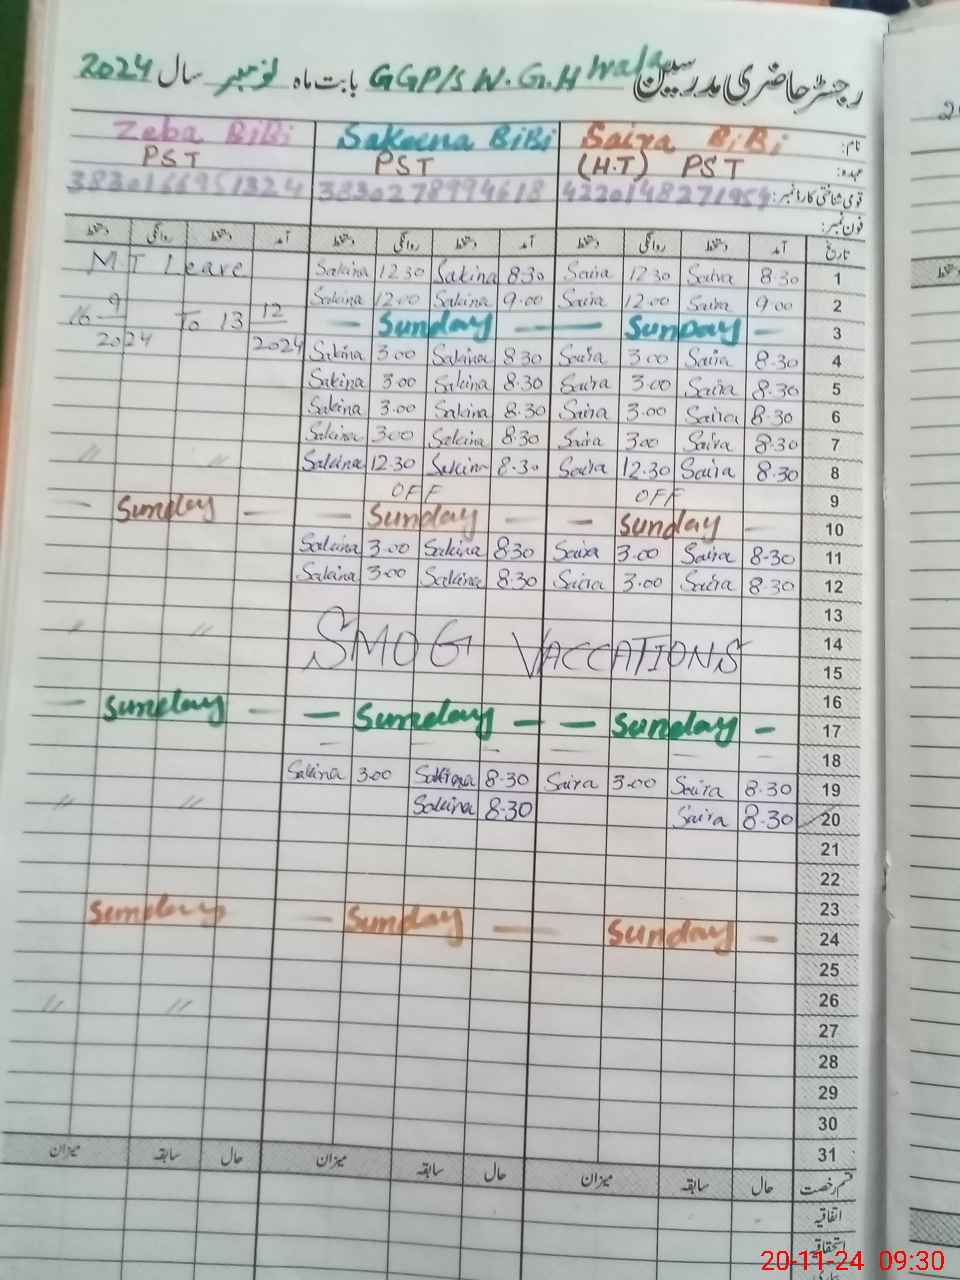 رجسٹر حاضری مدرسین GGP/S W.G.H wala بابت ماہ نومبر سال 2024
نام: Saira BiBi Sakeena BiBi Zeba BiBi
عہدہ: (H.T) PST PST PST
قومی شناختی کارڈ نمبر:
فون نمبر:
تاریخ آمد دستخط روانگی دستخط آمد دستخط روانگی دستخط آمد دستخط روانگی دستخط
MT Leave Sakina 12 30 Sakina 8:30 Saira 12 30 Saira 8.30 1
Sakina 12.00 Sakina 9.00 Saira 12.00 Saira 9.00 2
16 9 2024 To 13 12 2024 — Sunday — — Sunday — 3
Sakina 3.00 Sakina 8.30 Saira 3.00 Saira 8.30 4
Sakina 3.00 Sakina 8.30 Saira 3.00 Saira 8.30 5
Sakina 3.00 Sakina 8.30 Saira 3.00 Saira 8.30 6
Sakina 3.00 Sakina 8.30 Saira 3.00 Saira 8.30 7
// // Sakina 12.30 Sakina 8.30 Saira 12.30 Saira 8.30 8
OFF OFF 9
— Sunday — — Sunday — — Sunday — 10
Sakina 3.00 Sakina 8.30 Saira 3.00 Saira 8.30 11
Sakina 3.00 Sakina 8.30 Saira 3.00 Saira 8.30 12
13
// // SMOG VACCATIONS 14
15
16
— Sunday — — Sunday — — Sunday — 17
18
Sakina 3.00 Sakina 8.30 Saira 3.00 Saira 8.30 19
// // Sakina 8.30 Saira 8.30 20
21
22
23
Sunday — Sunday — Sunday — 24
25
// // 26
27
28
29
30
31
قسم رخصت حال سابقہ میزان حال سابقہ میزان حال سابقہ میزان
اتفاقیہ
استحقاقیہ
20-11-24 09:30